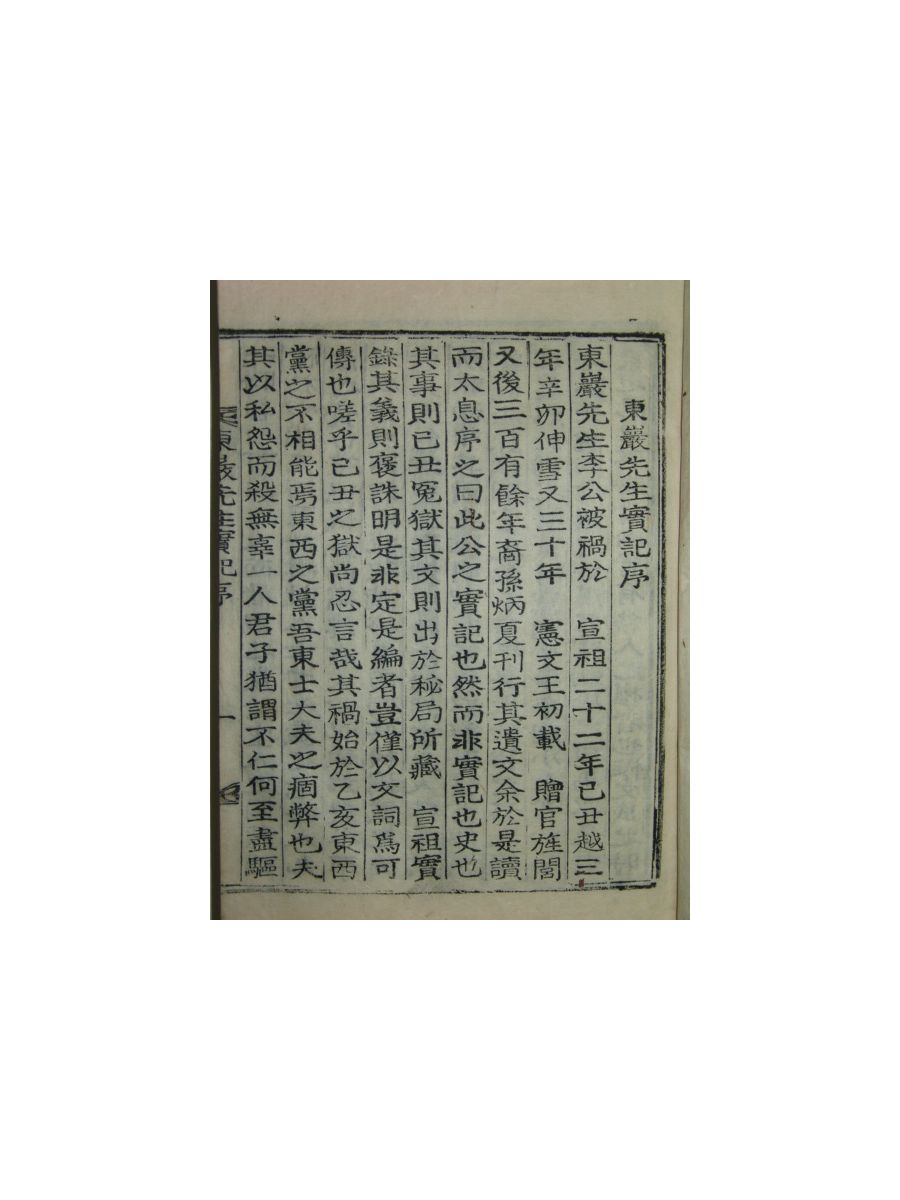 東巖先生實記序
東巖先生李公被禍於 宣祖二十二年己丑越三
年辛卯伸雪又三十年 憲文王初載 贈官旌閭
又後三百有餘年裔孫炳夏刊行其遺文余於是讀
而太息序之曰此公之實記也然而非實記也史也
其事則已丑冤獄其文則出於秘局所藏 宣祖實
錄其義則褒誅明是非定是編者豈僅以文詞爲可
傳也嗟乎已丑之獄尚忍言哉其禍始於乙亥東西
黨之不相能焉東西之黨吾東士大夫之痼弊也夫
其以私怨而殺無辜一人君子猶謂不仁何至盡驅
東巖先生實記序 一